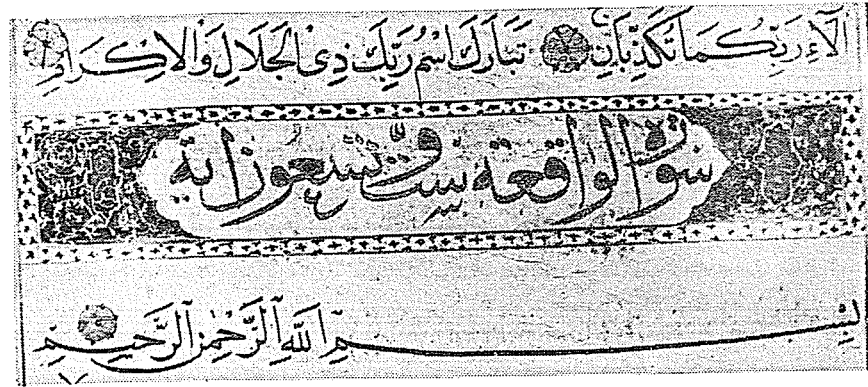 اٰلَاءِ رَبِّكُمَا تُكَذِّبَانِ تَبَارَكَ اسْمُ رَبِّكَ ذِى الْجَلَالِ وَالْاِكْرَامِ
سورة الواقعة ست وتسعون اية
بِسْمِ اللّٰهِ الرَّحْمٰنِ الرَّحِيمِ